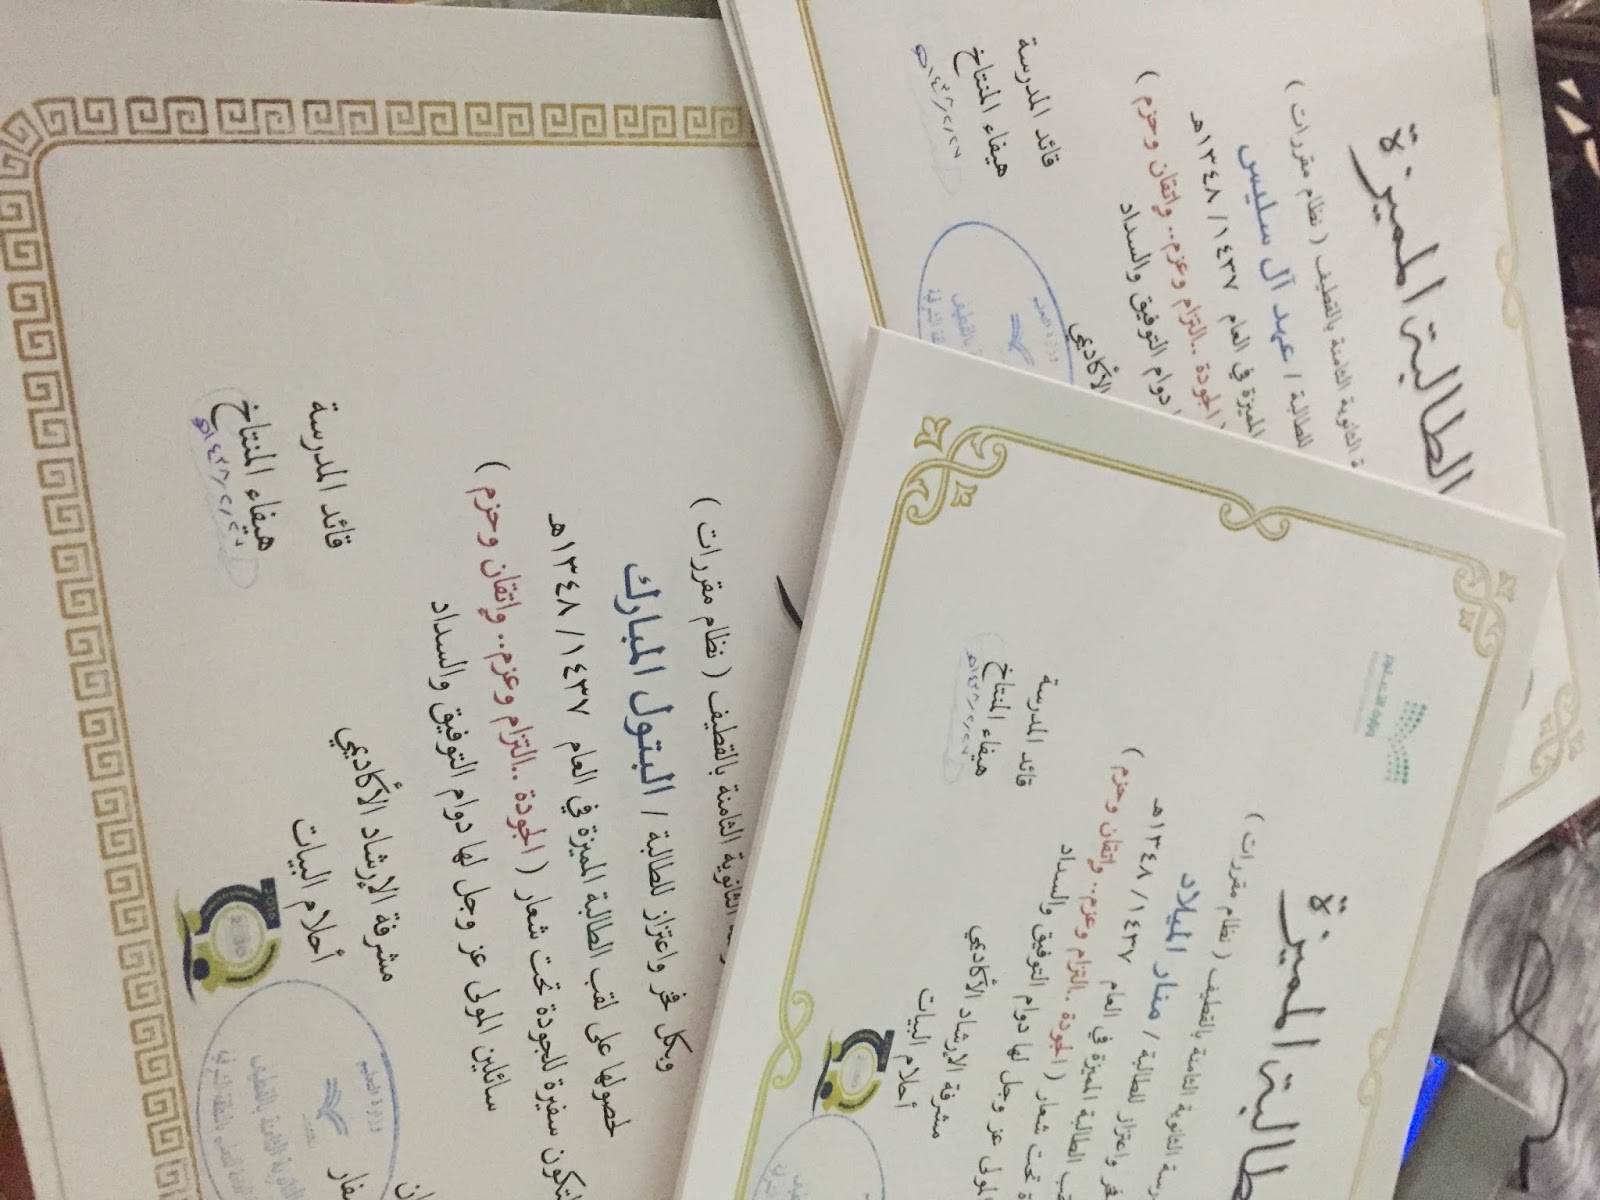 الثانوية الثامنة بالقطيف ( نظام مقررات )
وبكل فخر واعتزاز للطالبة / البتول المبارك
لحصولها على لقب الطالبة المميزة في العام ١٤٣٧ / ١٣٤٨هـ
لتكون سفيرة للجودة تحت شعار ( الجودة ..التزام وعزم.. وإتقان وحزم )
سائلين المولى عز وجل لها دوام التوفيق والسداد
مشرفة الإرشاد الأكاديمي
أحلام البيات
قائد المدرسة
هيفاء المنتاخ
وزارة التعليم
2016
2030
الطالبة المميزة
الثانوية الثامنة بالقطيف ( نظام مقررات )
للطالبة / عهد آل سليس
المميزة في العام ١٤٣٧ / ١٣٤٨هـ
( الجودة ..التزام وعزم.. وإتقان وحزم )
دوام التوفيق والسداد
الأكاديمي
قائد المدرسة
هيفاء المنتاخ
وزارة التعليم
الطالبة المميزة
الثانوية الثامنة بالقطيف ( نظام مقررات )
واعتزاز للطالبة / منار الميلاد
الطالبة المميزة في العام ١٤٣٧ / ١٣٤٨هـ
تحت شعار ( الجودة ..التزام وعزم.. وإتقان وحزم )
المولى عز وجل لها دوام التوفيق والسداد
مشرفة الإرشاد الأكاديمي
أحلام البيات
قائد المدرسة
هيفاء المنتاخ